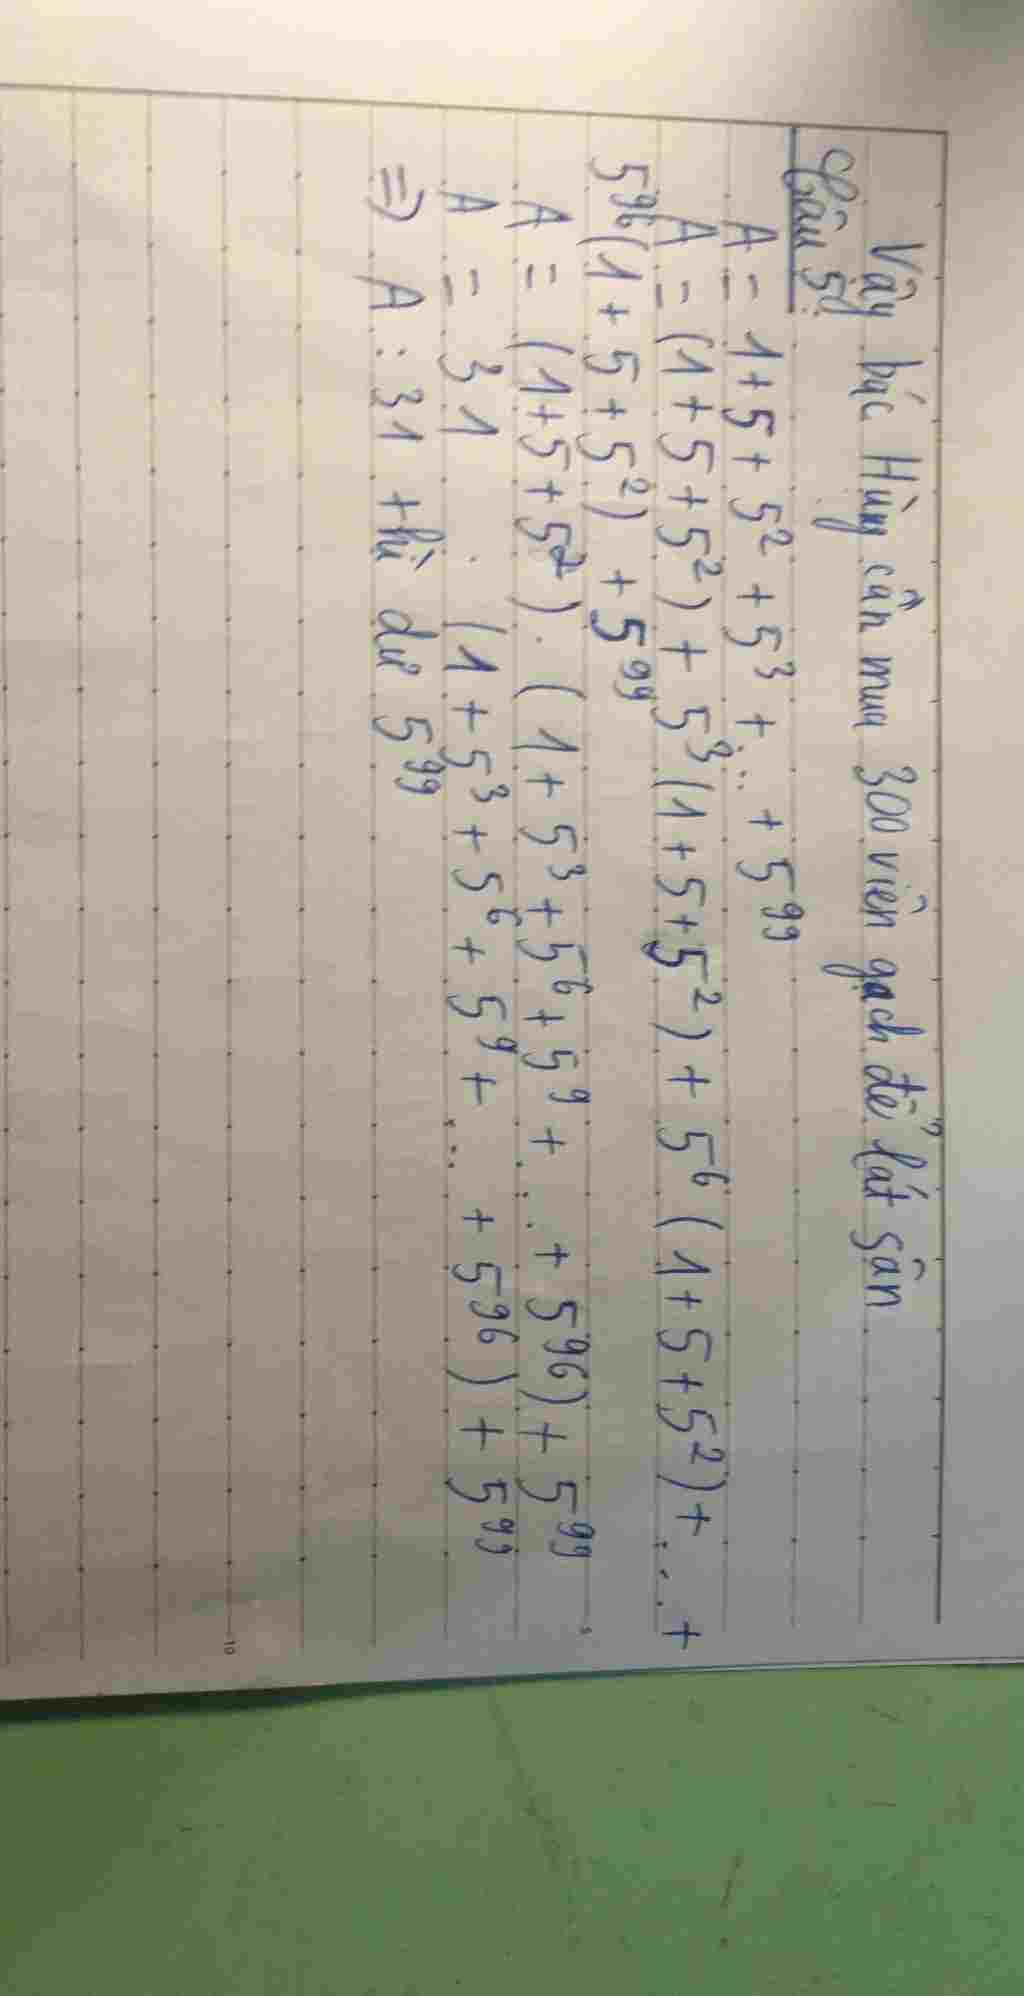 Vậy bác Hùng cần mua 300 viên gạch để lát sân
Câu 5:
A = 1 + 5 + 5² + 5³ + ... + 5⁹⁹
A = (1 + 5 + 5²) + 5³ (1 + 5 + 5²) + 5⁶ (1 + 5 + 5²) + ... +
5⁹⁶ (1 + 5 + 5²) + 5⁹⁹
A = (1 + 5 + 5²) . (1 + 5³ + 5⁶ + 5⁹ + ... + 5⁹⁶) + 5⁹⁹
A = 31 . (1 + 5³ + 5⁶ + 5⁹ + ... + 5⁹⁶) + 5⁹⁹
=> A : 31 thì dư 5⁹⁹
5
10